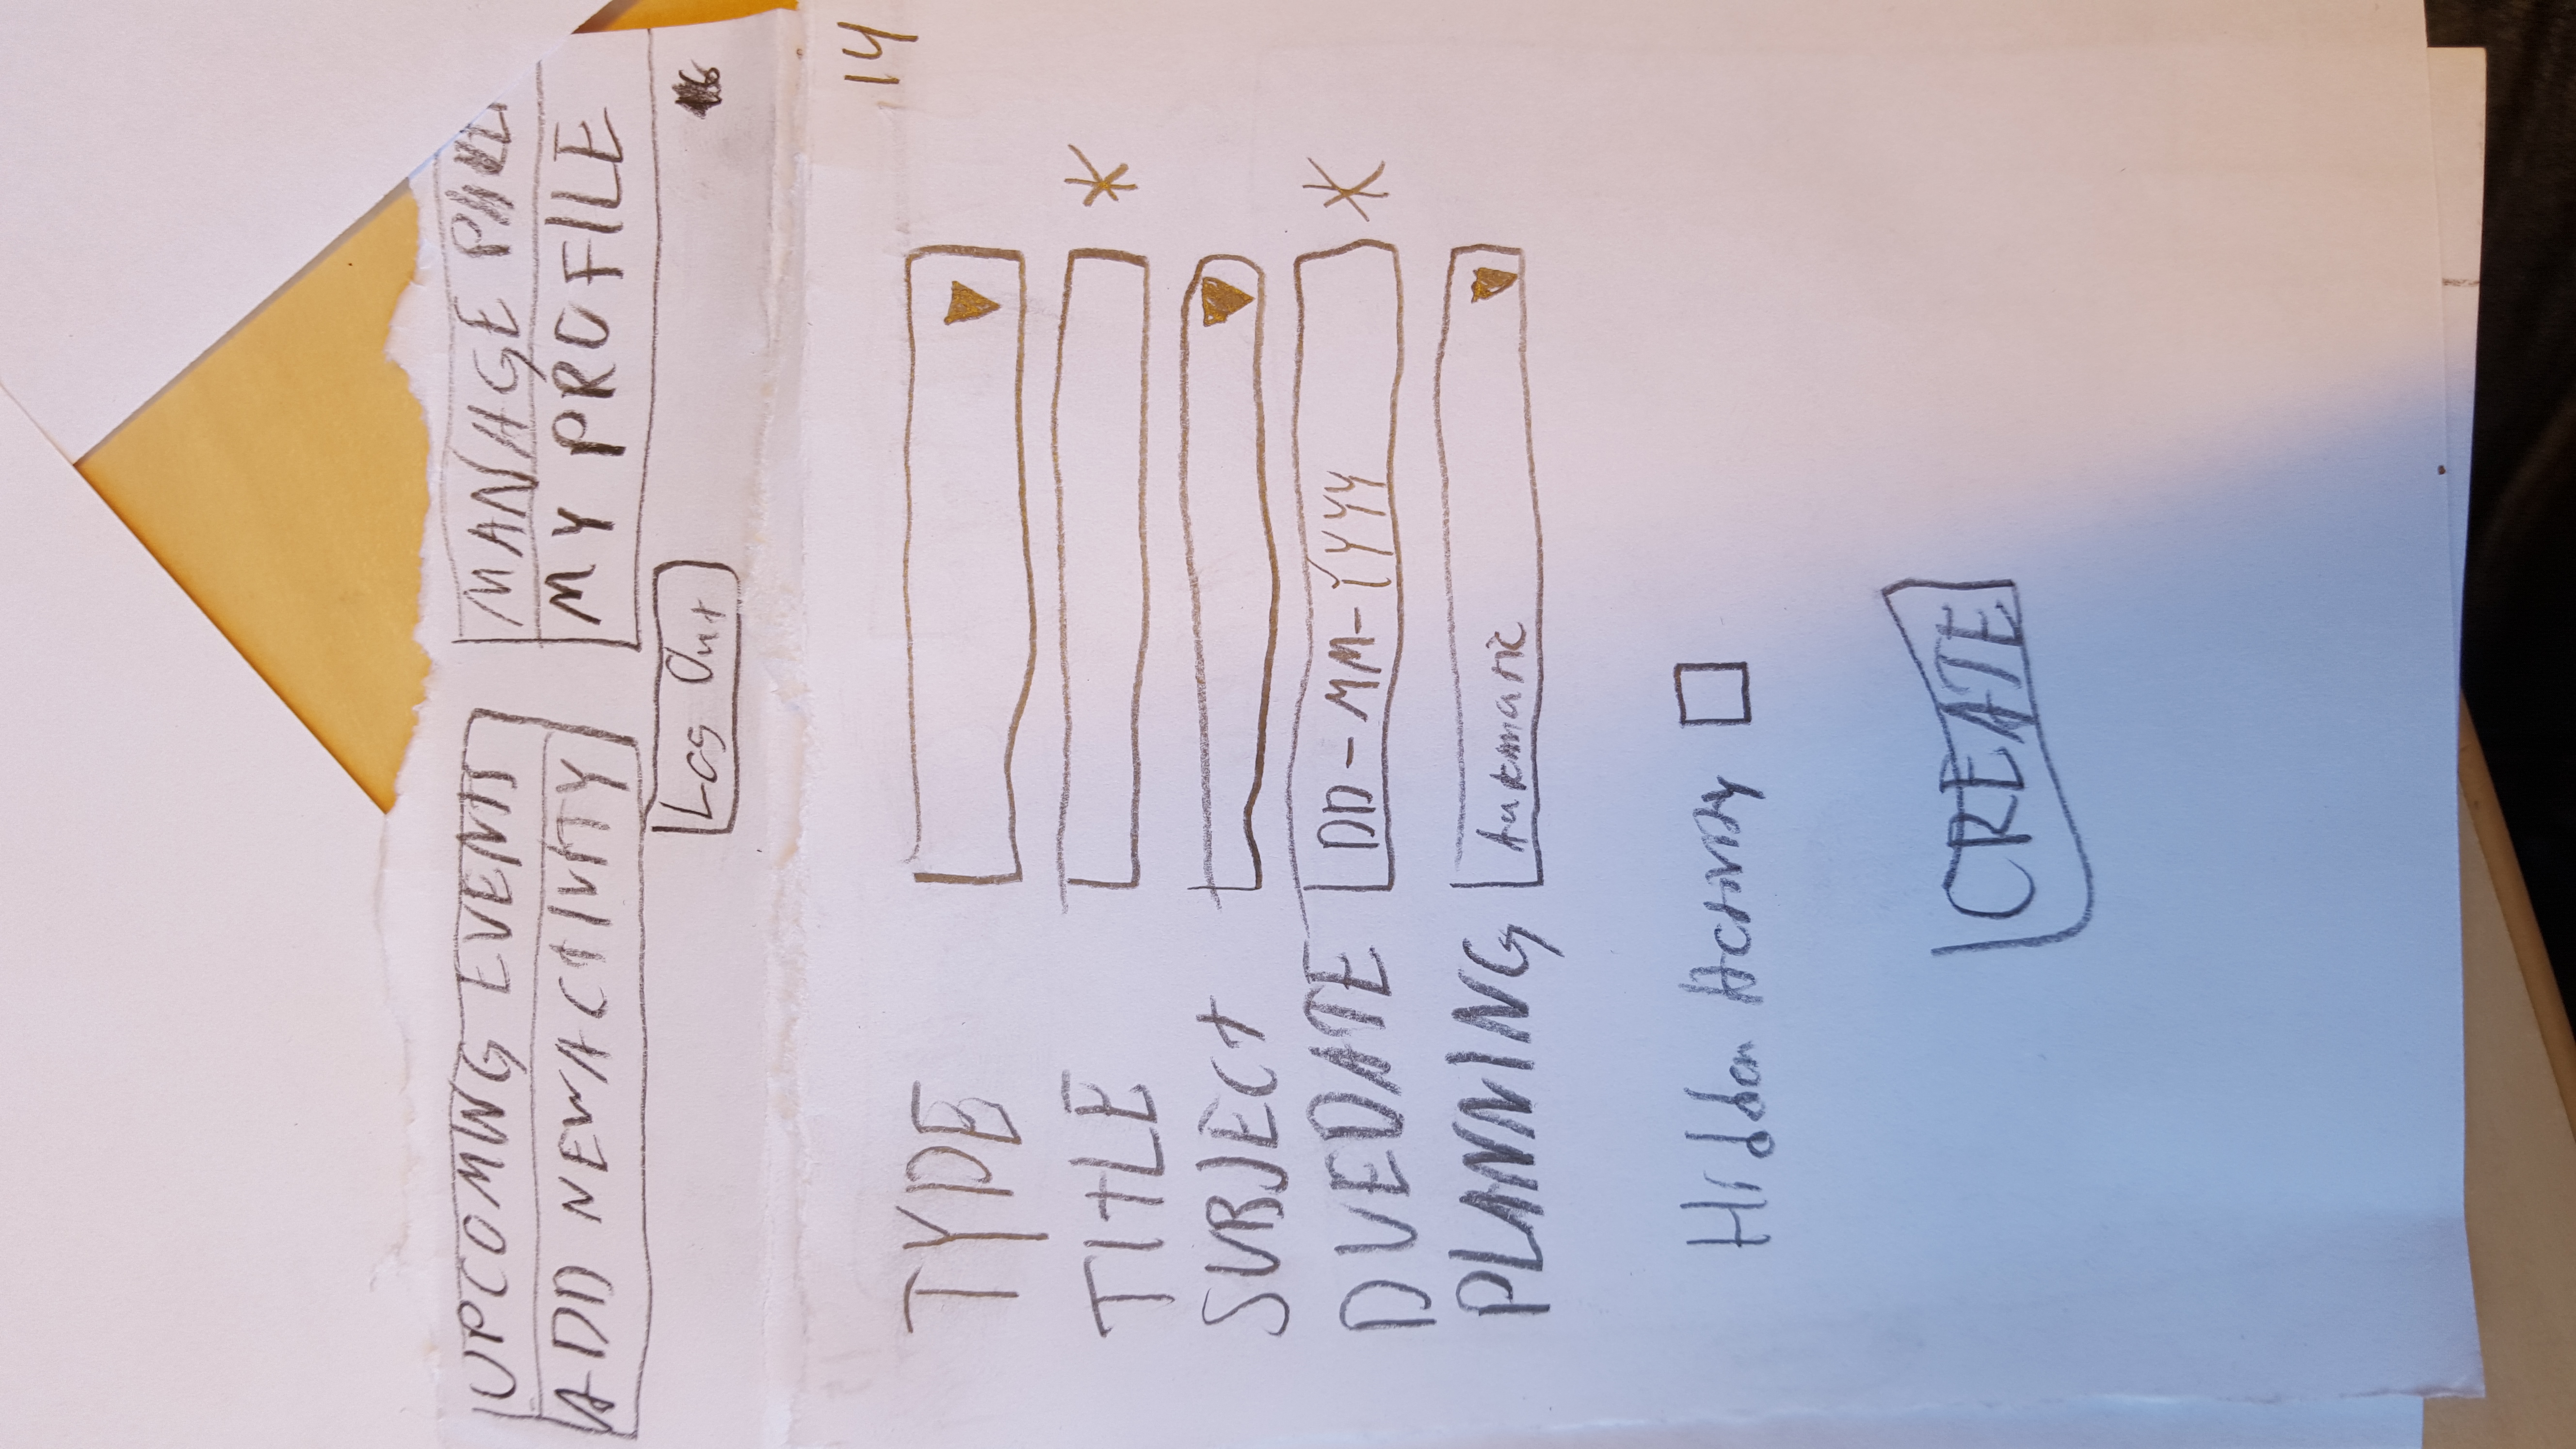 UPCOMING EVENTS
MANAGE
ADD NEW ACTIVITY
MY PROFILE
Log Out
16
14
TYPE
TITLE *
SUBJECT
DUEDATE DD-MM-YYYY *
PLANNING Automatic
Hidden Activity
CREATE